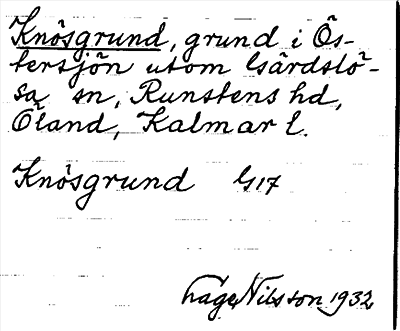 Knösgrund, grund i Ös-
tersjön utom Gärdslö-
sa sn, Runstens hd,
Öland, Kalmar l.
Knösgrund G17
Lage Nilsson 1932